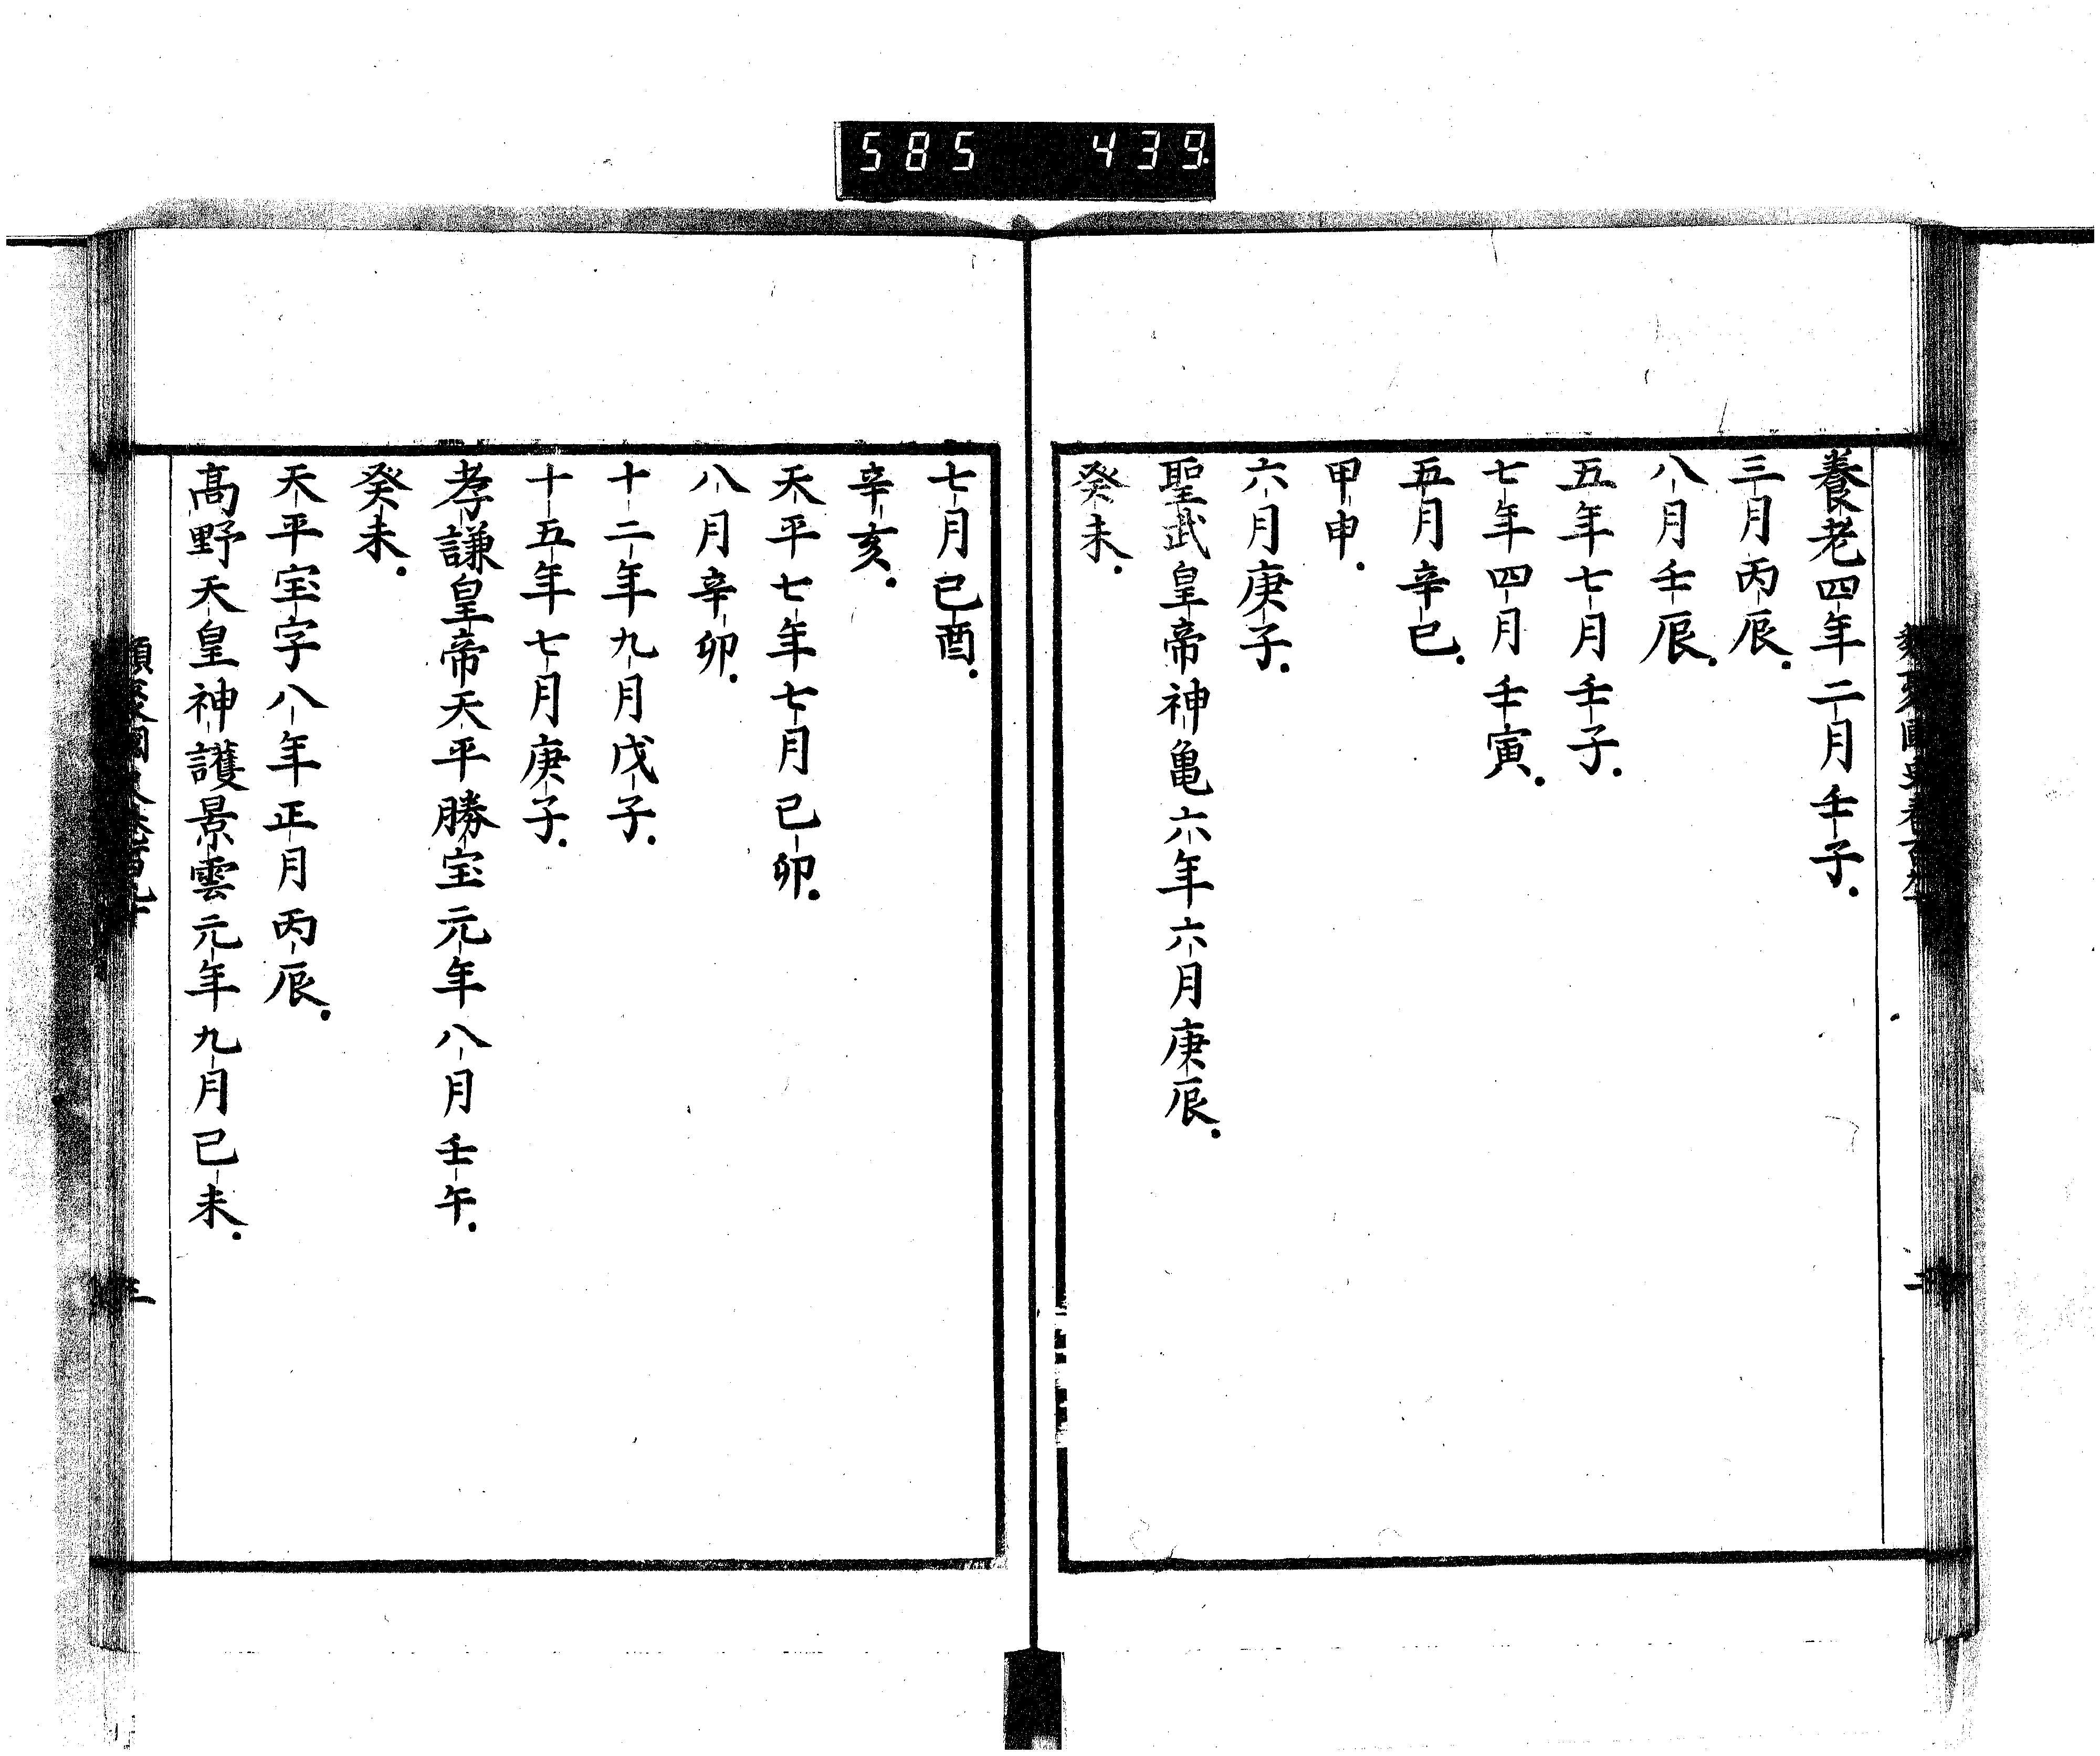 585 439
養老四年二月壬子.
三月丙辰.
八月壬辰.
五年七月壬子.
七年四月壬寅.
五月辛巳.
甲申.
六月庚子.
聖武皇帝神亀六年六月庚辰.
癸未.
七月己酉.
辛亥.
天平七年七月己卯.
八月辛卯.
十二年九月戊子.
十五年七月庚子.
孝謙皇帝天平勝宝元年八月壬午.
癸未.
天平宝字八年正月丙辰.
高野天皇神護景雲元年九月己未.
三